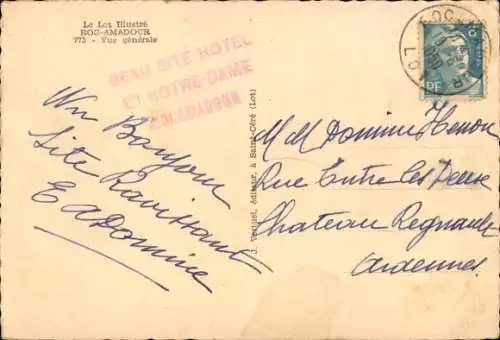 Le Lot Illustré
ROC-AMADOUR
773 - Vue générale
BEAU SITE HOTEL
ET NOTRE-DAME
ROCAMADOUR
Un Bonjour
Site Ravissant
J. Vertuel, éditeur, à Saint-Céré (Lot)
LOT
RF
M M Dominé
Rue Entre les Deux
Chateau Regnault
Ardennes